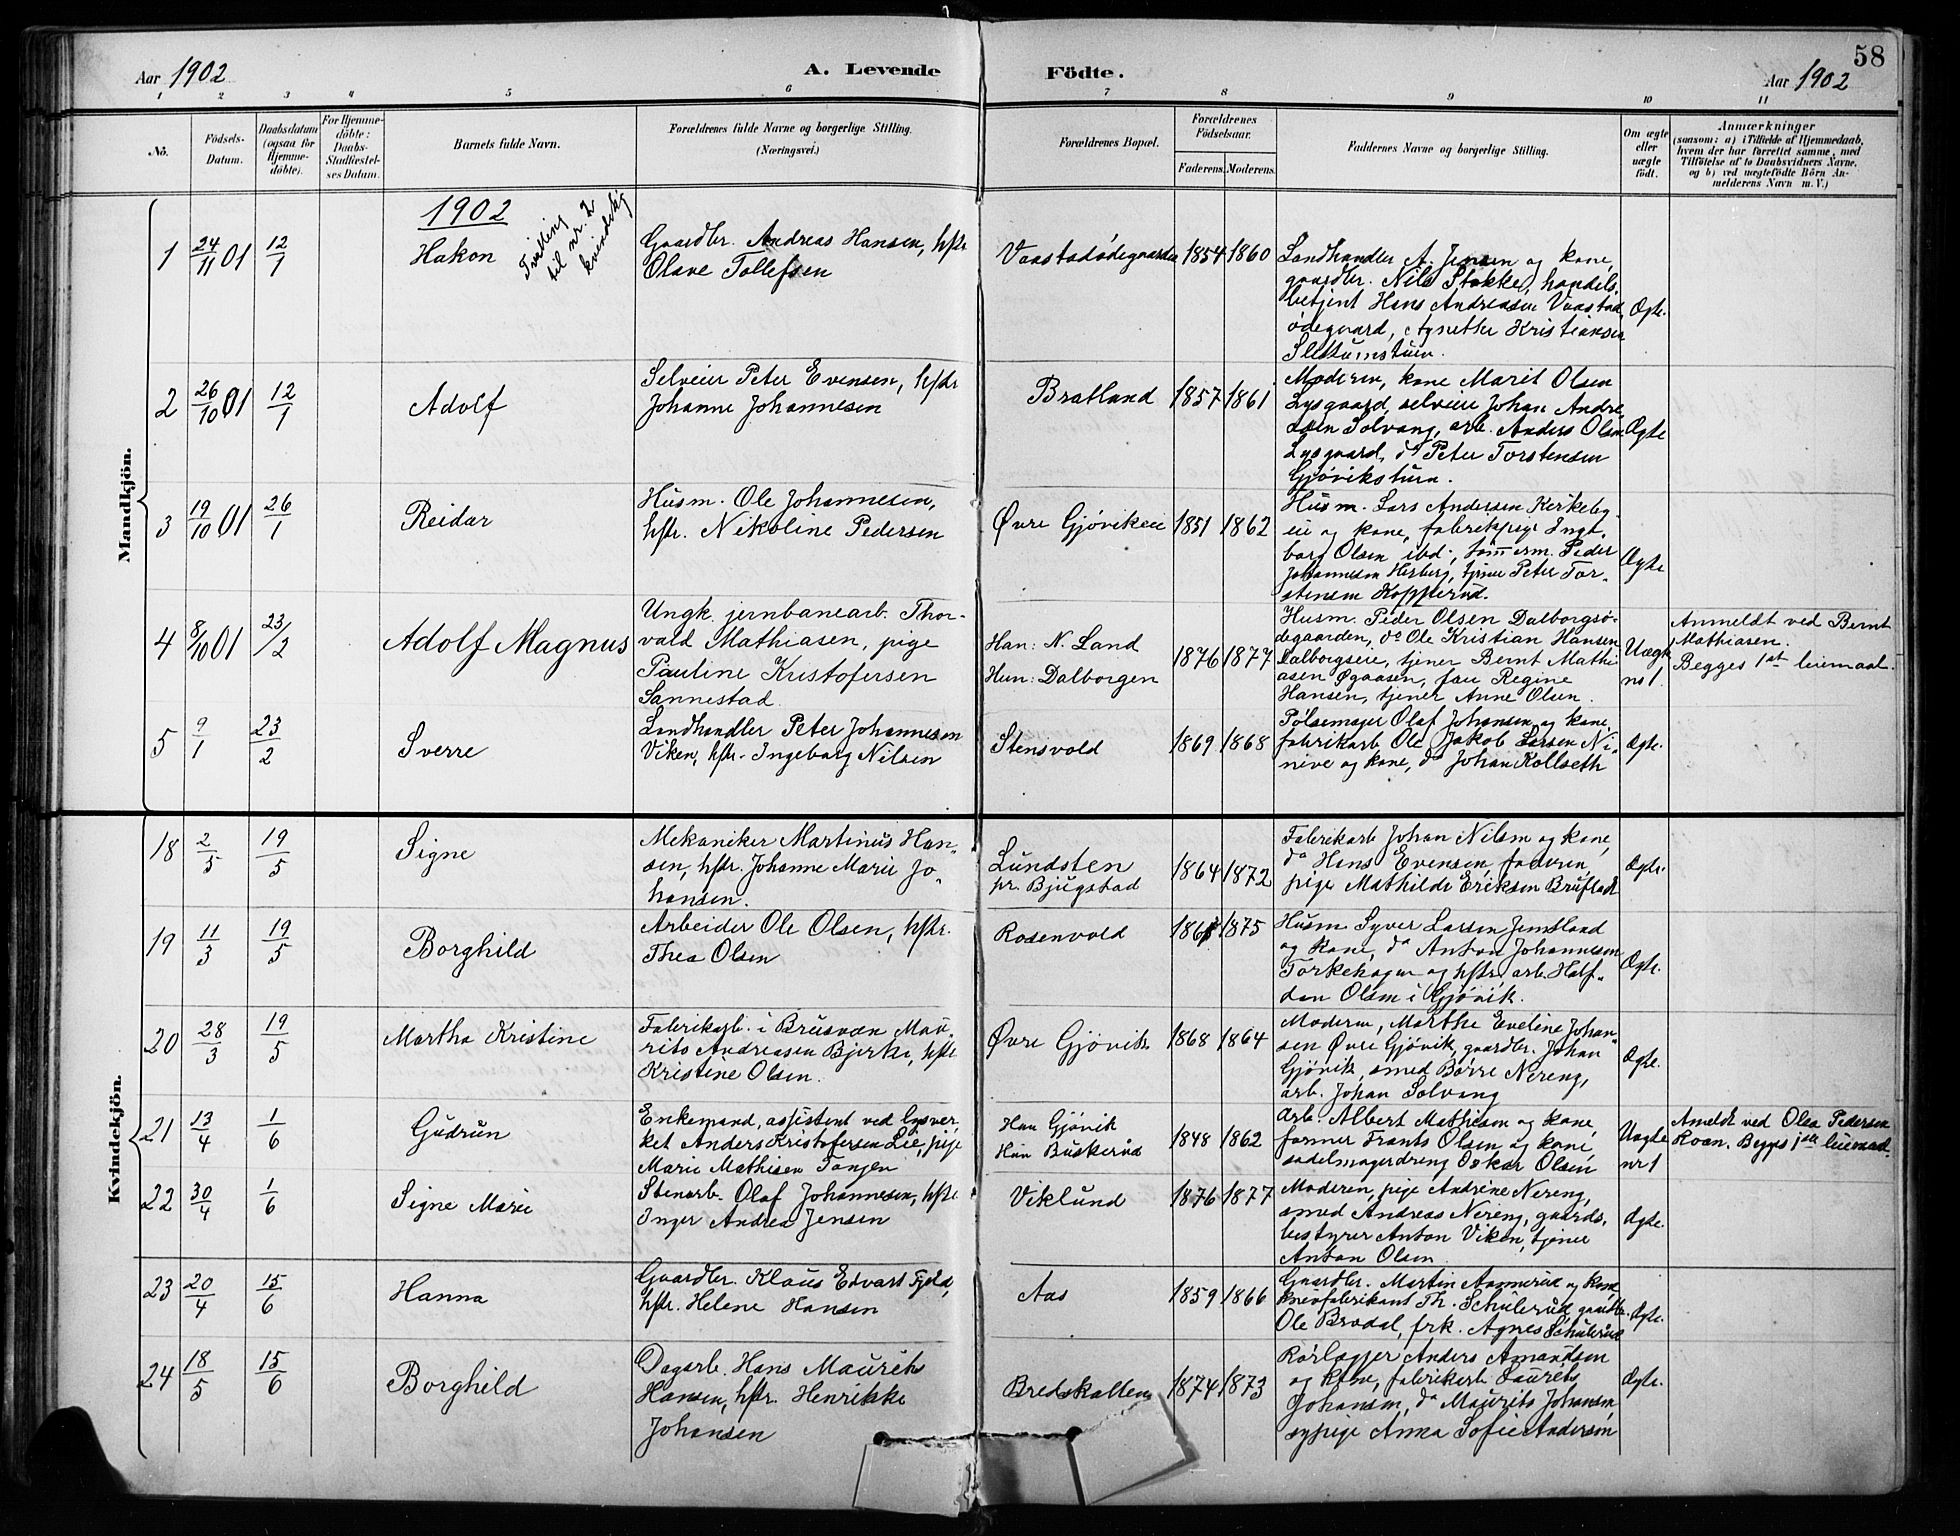 58
Aar 1902
A. Levende Födte.
Aar 1902
1 2 3 4 5 6 7 8 9 10 11
No.
Födsels-
Datum.
Daabsdatum
(ogsaa for
Hjemme-
döbte).
For Hjemme-
döbte:
Daabs-
Stadfæstel-
ses Datum.
Barnets fulde Navn.
Forældrenes fulde Navne og borgerlige Stilling.
(Næringsvei.)
Forældrenes Bopæl.
Forældrenes
Födselsaar.
Faderens. Moderens.
Faddernes Navne og borgerlige Stilling.
Om ægte
eller
uægte
födt.
Anmærkninger
(saasom: a) i Tilfælde af Hjemmedaab,
hvem der har forrettet samme, med
Tilföielse af to Daabsvidners Navne,
og b) ved uægtefödte Börn An-
melderens Navn m. V.)
Mandkjön.
1902
1
24/11 01
12/1
Hakon
Tvilling
til nr. 2
kvindekj
Gaardbr. Andreas Hansen, hstr
Olave Tollefsen
Vaastadødegaarden
1854 1860
Landhandler A. Jensen og kone,
gaardbr. Nils Stokke, handels-
betjent Hans Andreasen Vaastad
ødegaard, Agnethe Kristiansen
Ægte.
2
26/10 01
12/1
Adolf
Selveier Peter Evensen, hstr
Johanne Johannesen
Bratland
1857 1861
Moderen, kone Marit Olsen
Lysgaard, selveier Johan Andre
asen Solvang, arb. Anders Olsen
Lysgaard, do Peter Torstensen
Gjøvikstuen.
Ægte
3
19/10 01
26/1
Reidar
Husm. Ole Johannesen,
hstr. Nikoline Pedersen
Øvre Gjøvikeie
1851 1862
Husm. Lars Andersen Kirkeby-
eie og kone, fabrikpige Inge-
borg Olsen ibd., tømmerm. Peder
Johannesen Herberg, tjener Peter Tor-
stensen Kopperud.
Ægte
4
8/10 01
23/2
Adolf Magnus
Ungk. jernbanearb. Thor-
vald Mathiasen, pige
Pauline Kristofersen
Sannestad
Han: N. Land
Hun: Dalborgen
1876 1877
Husm. Peder Olsen Dalborgsø-
degaarden, do Ole Kristian Hansen
Dalborgseie, tjener Bernt Mathi
asen Øgaasen, fru Regine
Hansen, tjener Anne Olsen.
Uægte
no 1.
Anmeldt ved Bernt
Mathiasen.
Begges 1ste leiermaal.
5
9/1
23/2
Sverre
Landhandler Peter Johannesen
Viken, hstr. Ingeborg Nilsen
Stensvold
1869 1868
Pølsemager Olaf Johansen og kone,
fabrikarb Ole Jakob Larsen Ni-
nive og kone, do Johan Kollseth
Ægte.
Kvindekjön.
18
2/5
19/5
Signe
Mekaniker Martinus Han-
sen, hstr. Johanne Marie Jo-
hansen.
Lundsten
pr. Bjugstad
1864 1872
Fabrikarb Johan Nilsen og kone,
do Hans Evensen, faderen,
pige Mathilde Eriksen Bruflat
Ægte.
19
11/3
19/5
Borghild
Arbeider Ole Olsen, hstr.
Thea Olsen
Rosenvold
1875
Husm Syver Larsen Jemtland
og kone, do Anton Johannesen
Torkehagen og hstr. arb. Half-
dan Olsen i Gjøvik.
Ægte.
20
28/3
19/5
Martha Kristine
Fabrikarb. i Brusvæn Mau-
rits Andreasen Bjerke, hstr
Kristine Olsen.
Øvre Gjøvik
1868 1864
Moderen, Marthe Eveline Johan-
sen Øvre Gjøvik, gaardbr. Johan
Gjøvik, smed Børre Nereng,
arb. Johan Solvang
Ægte.
21
13/4
1/6
Gudrun
Enkemand, assistent ved lysver-
ket Anders Kristofersen Lie, pige
Marie Mathisen Tangen
Han Gjøvik
Hun Buskerud
1848 1862
Arb. Albert Mathisen og kone,
former Frants Olsen og kone,
sadelmagerdreng Oskar Olsen
Uægte
nr 1
Anmeldt ved Olea Pedersen
Roen. Begges 1ste leiermaal.
22
30/4
1/6
Signe Marie
Stenarb. Olaf Johannesen, hstr
Inger Andrea Jensen
Viklund
1876 1877
Moderen, pige Andrine Nereng,
smed Andreas Nereng, gaards-
bestyrer Anton Viken, tjener
Anton Olsen
Ægte.
23
20/4
15/6
Hanna
Gaardbr. Klaus Edvart Fjeld,
hstr. Helene Hansen
Aas
1859 1866
Gaardbr. Martin Aannerud og kone
knivfabrikant Th. Schülerud, gaardbr.
Ole Brodal, frk. Agnes Schülerud
Ægte.
24
18/5
15/6
Borghild
Dagarb. Hans Maurits
Hansen, hstr. Henrikke
Johansen
Bredskallen
1874 1873
Rørlægger Anders Amandsen
og kone, fabrikarb Laurits
Johansen, do Maurits Johansen,
sypige Anna Sofie Andersen
Ægte.